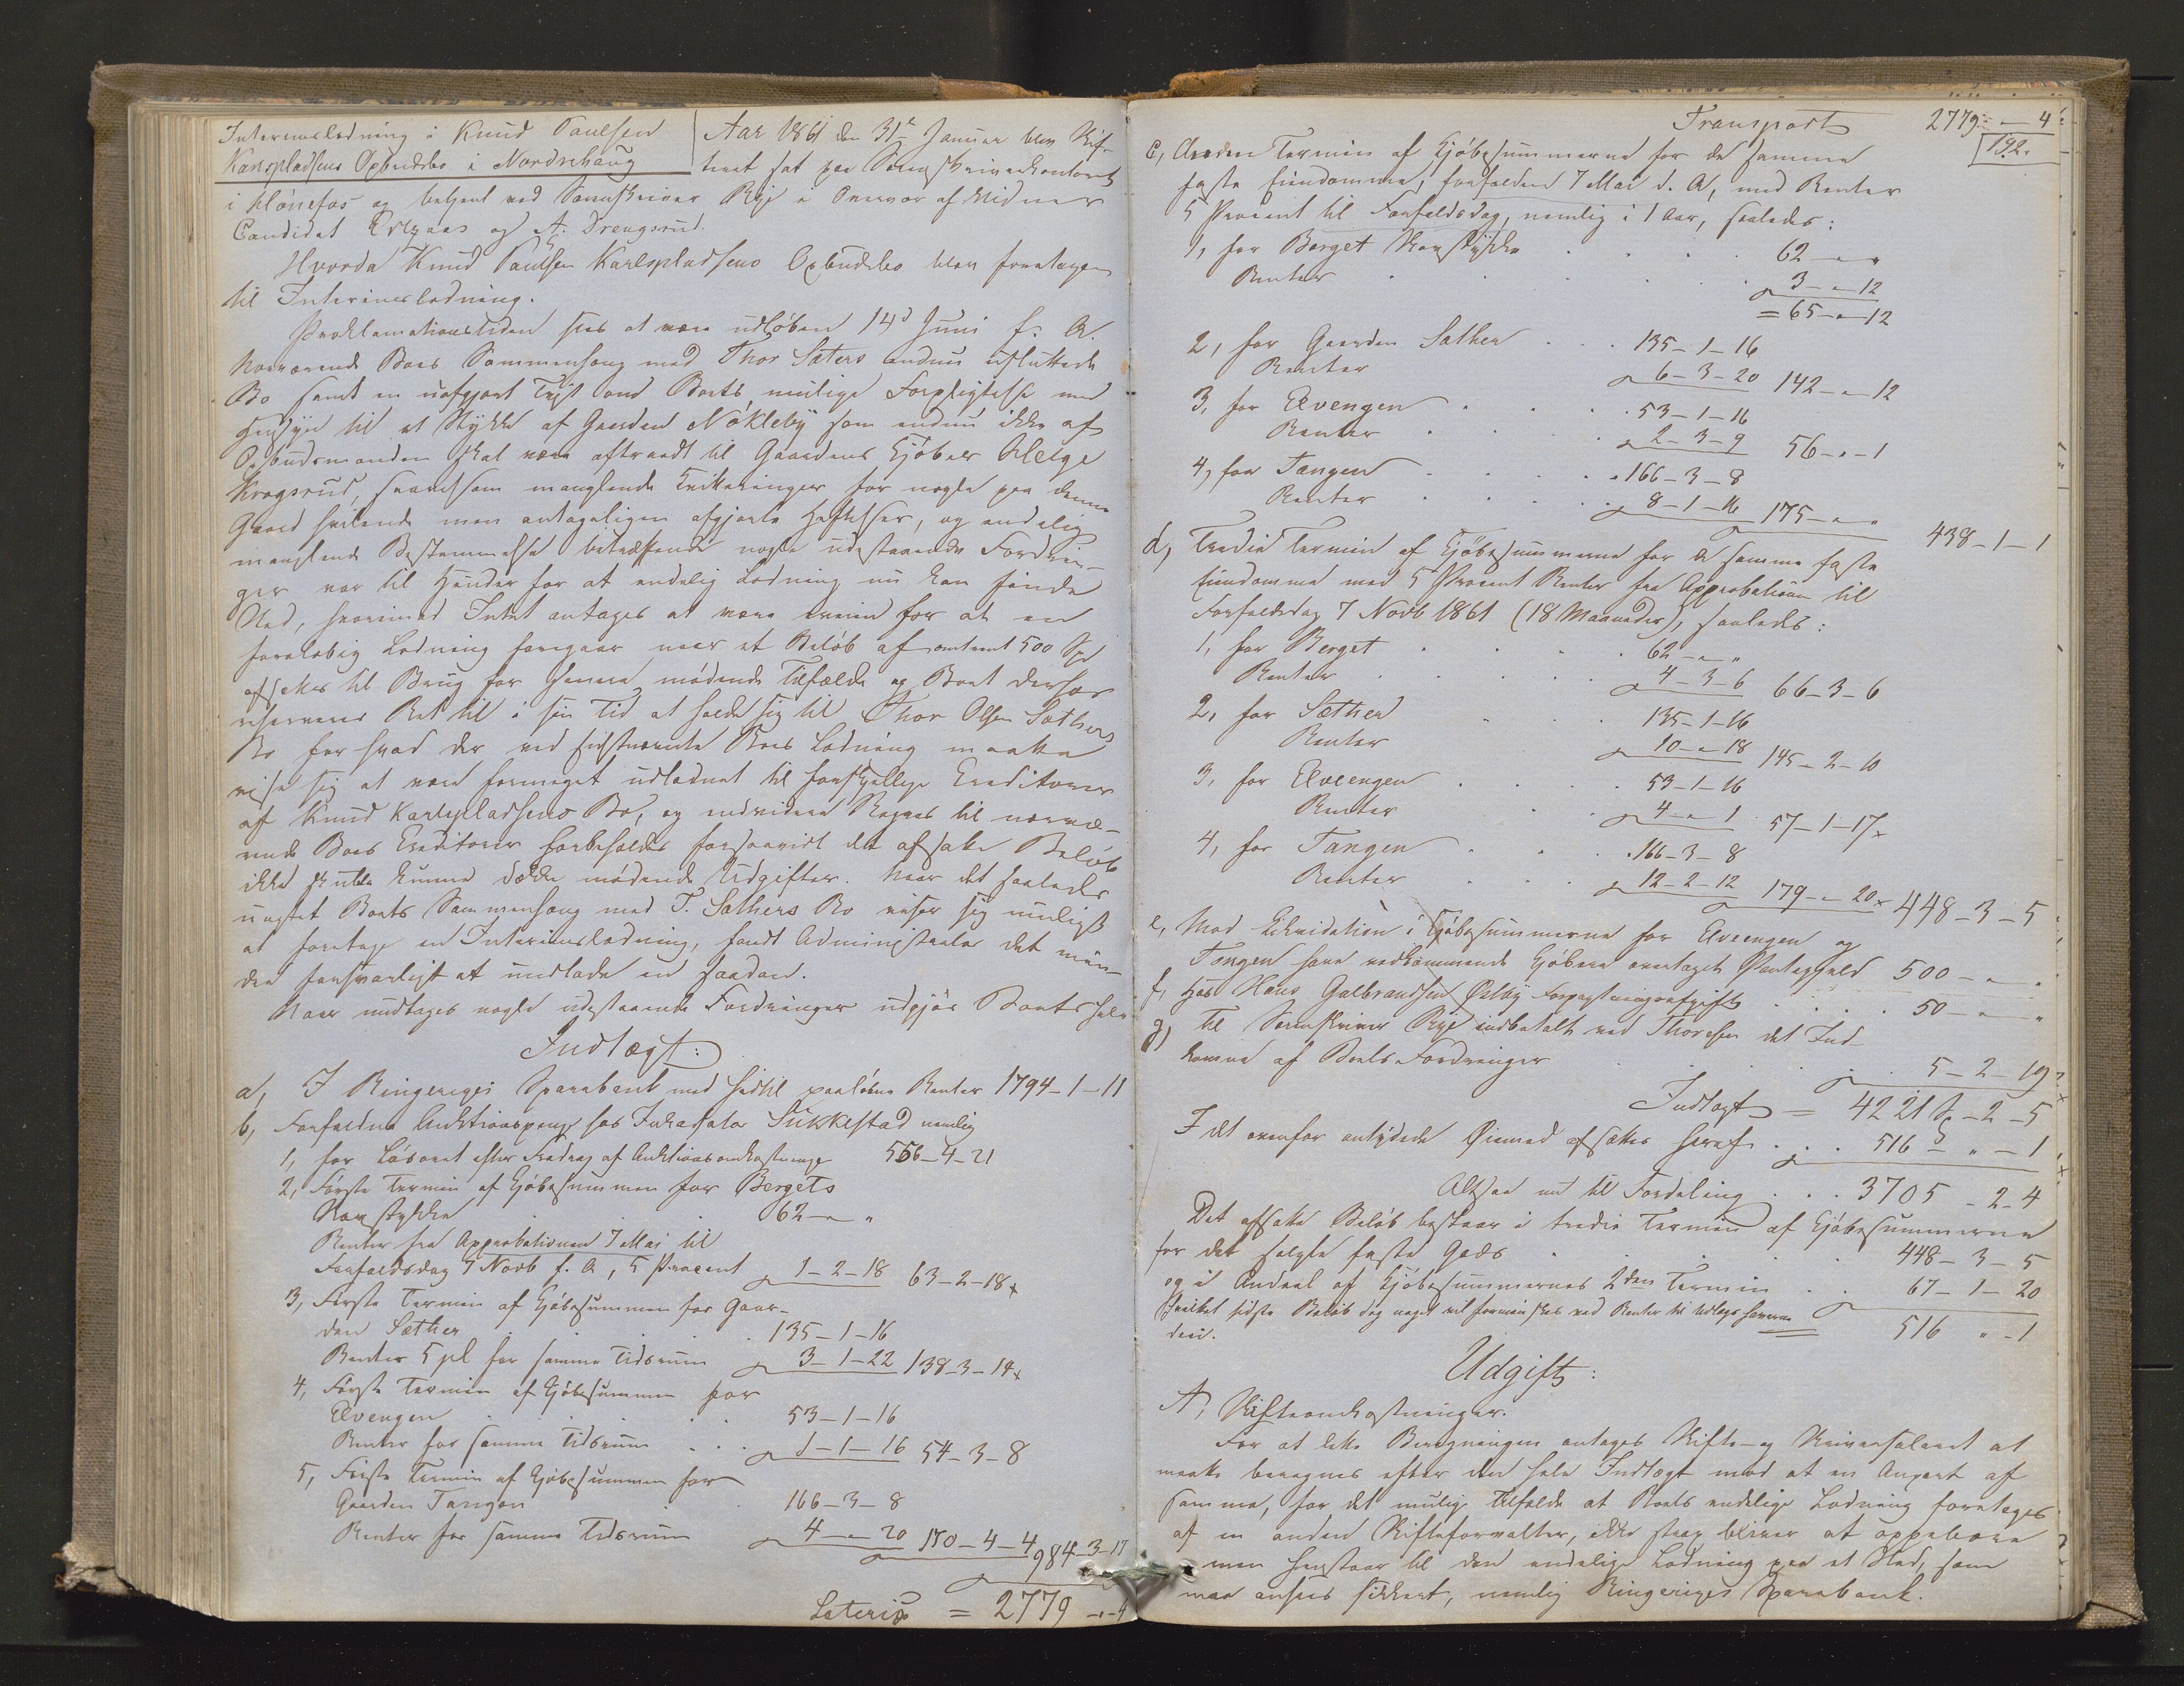 Interimsslodning i Knud Paulsen
Karlspladsens Opbudsbo i Norderhaug
Aar 1861 den 31te Januar blev Skif-
teret sat paa Sorenskriverkontoret
i Hønefos og betjent ved Sorenskriver Rye i Overvær af Vidner
Candidat og A. Drengsrud.
Hvorda Knud Paulsen Karlspladsens Opbudsbo blev foretagen
til Interimslodning.
Proklamationstiden sees at være udløben 14d Juni f. A.
Nærværende Boes Sammenhæng med Thor Sæters endnu usluttede
Bo samt en uafgjort Tvist om Boets mulige Forpligtelse med
Hensyn til et Stykke af Gaarden Nøkleby som endnu ikke af
Opbudsmanden skal være aftraadt til Gaardens Kjøber Helge
Krogsrud, saavelsom manglende Qvitteringer for nogle paa denne
Gaard hvilende men antageligen afgjorte Heftelser, og endelig
manglende Bestemmelse betræffende nogle udestaaende Fordrin-
ger var til Hinder for at endelig Lodning nu kan finde
Sted, hvorimod Intet antages at være iveien for at en
foreløbig Lodning foregaar naar et Beløb af omtrent 500 Spd
afsættes til Brug for senere mødende Tilfælde og Boet derhos
reserveres Ret til i sin Tid at holde sig til Thor Olsen Sæthers
Bo for hvad der ved sidstnævnte Boes Lodning maatte
vise sig at være formeget udloddet til forskjellige Creditorer
af Knud Karlspladsens Bo, og endvidere Regres til nærvæ-
rende Boes Creditorer forbeholdes forsaavidt det afsatte Beløb
ikke skulde kunne dække mødende Udgifter. Naar det saaledes
uagtet Boets Sammenhæng med T. Sæthers Bo viser sig muligt
at foretage en Interimslodning, fandt Administrator det min-
dre forsvarligt at undlade en saadan.
Naar undtages nogle udestaaende Fordringer udgjør Boets hele
Indtægt:
a, I Ringeriges Sparebank med hidtil paaløbne Renter 1794-1-11
b, Forfaldne Auktionspenge hos Inkassator Sukkestad nemlig
1, for Løsøret efter Fradrag af Auktionsomkostninger 556-4-21
2, Første Termin af Kjøbesummen for Bergets
Havstykke . . 62-"-"
Renter fra Approbationen 7 Mai til
Forfaldsdag 7 Novb f. A, 5 Procent 1-2-18 63-2-18
3, Første Termin af Kjøbesummen for Gaar-
den Sæther . . . 135-1-16
Renter 5 pC for samme Tidsrum 3-1-22 138-3-14
4, Første Termin af Kjøbesummen for
Elvengen . . . 53-1-16
Renter for samme Tidsrum . . . 1-1-16 54-3-8
5, Første Termin af Kjøbesummen for
Gaarden Tangen . . 166-3-8
Renter for samme Tidsrum 4-"-20 170-4-4 984-3-17
Lateris = 2779-"-4
Transport 2779-"-4
192.
c, Anden Termin af Kjøbesummerne for de samme
faste Eiendomme, forfalden 7 Mai d. A, med Renter
5 Procent til Forfaldsdag, nemlig i 1 Aar, saaledes:
1, for Berget Havstykke . . . 62-"-"
Renter . . . 3-"-12
= 65-"-12
2, for Gaarden Sæther . . . 135-1-16
Renter 6-3-20 142-"-12
3, for Elvengen . . . 53-1-16
Renter . . . 2-3-9 56-"-1
4, for Tangen . . . 166-3-8
Renter . . . 8-1-16 175-"-" 438-1-1
d, Tredie Termin af Kjøbesummerne for de samme faste
Eiendomme med 5 Procent Renter fra Approbationen til
Forfaldsdag 7 Novb 1861 (18 Maaneder), saaledes:
1, for Berget . . . 62-"-"
Renter . . . 4-3-6 66-3-6
2, for Sæther . . . 135-1-16
Renter 10-"-18 145-2-10
3, for Elvengen . . . 53-1-16
Renter . 4-"-1 57-1-17
4, for Tangen . . . 166-3-8
Renter . . . 12-2-12 179-"-20 448-3-5
e, Mod Likvidation i Kjøbesummerne for Elvengen og
Tangen have vedkommende Kjøbere overtaget Pantegjeld 500-"-"
f, Hos Hans Gulbrandsen Østby Forpagtningsafgift . . . 50-"-"
g) Til Sorenskriver Rye indbetalt ved Thoresen det Ind-
komne af Boets Fordringer . . . 5-2-19
Indtægt = 4221 Sp-2-5
I det ovenfor antydede Øiemed afsættes heraf . . . 516-"-1
Altsaa nu til Fordeling . . . 3705-2-4
Det afsatte Beløb bestaar i tredie Termin af Kjøbesummerne
for det solgte faste Gods . . . 448-3-5
og i Andeel af Kjøbesummernes 2den Termin . . 67-1-20
hvilket sidste Beløb dog noget vil formindskes ved Renter til Udlægshaverne
deri. 516-"-1
Udgift:
A, Skifteomkostninger.
For at lette Beregningen antages Skifte- og Skriversalæret at
maatte beregnes efter den hele Indtægt mod at en Anpart af
samme, for det mulige Tilfælde at Boets endelige Lodning foretages
af en anden Skifteforvalter, ikke strax bliver at oppebære
men henstaar til den endelige Lodning paa et Sted, som
maa ansees sikkert, nemlig Ringeriges Sparebank.